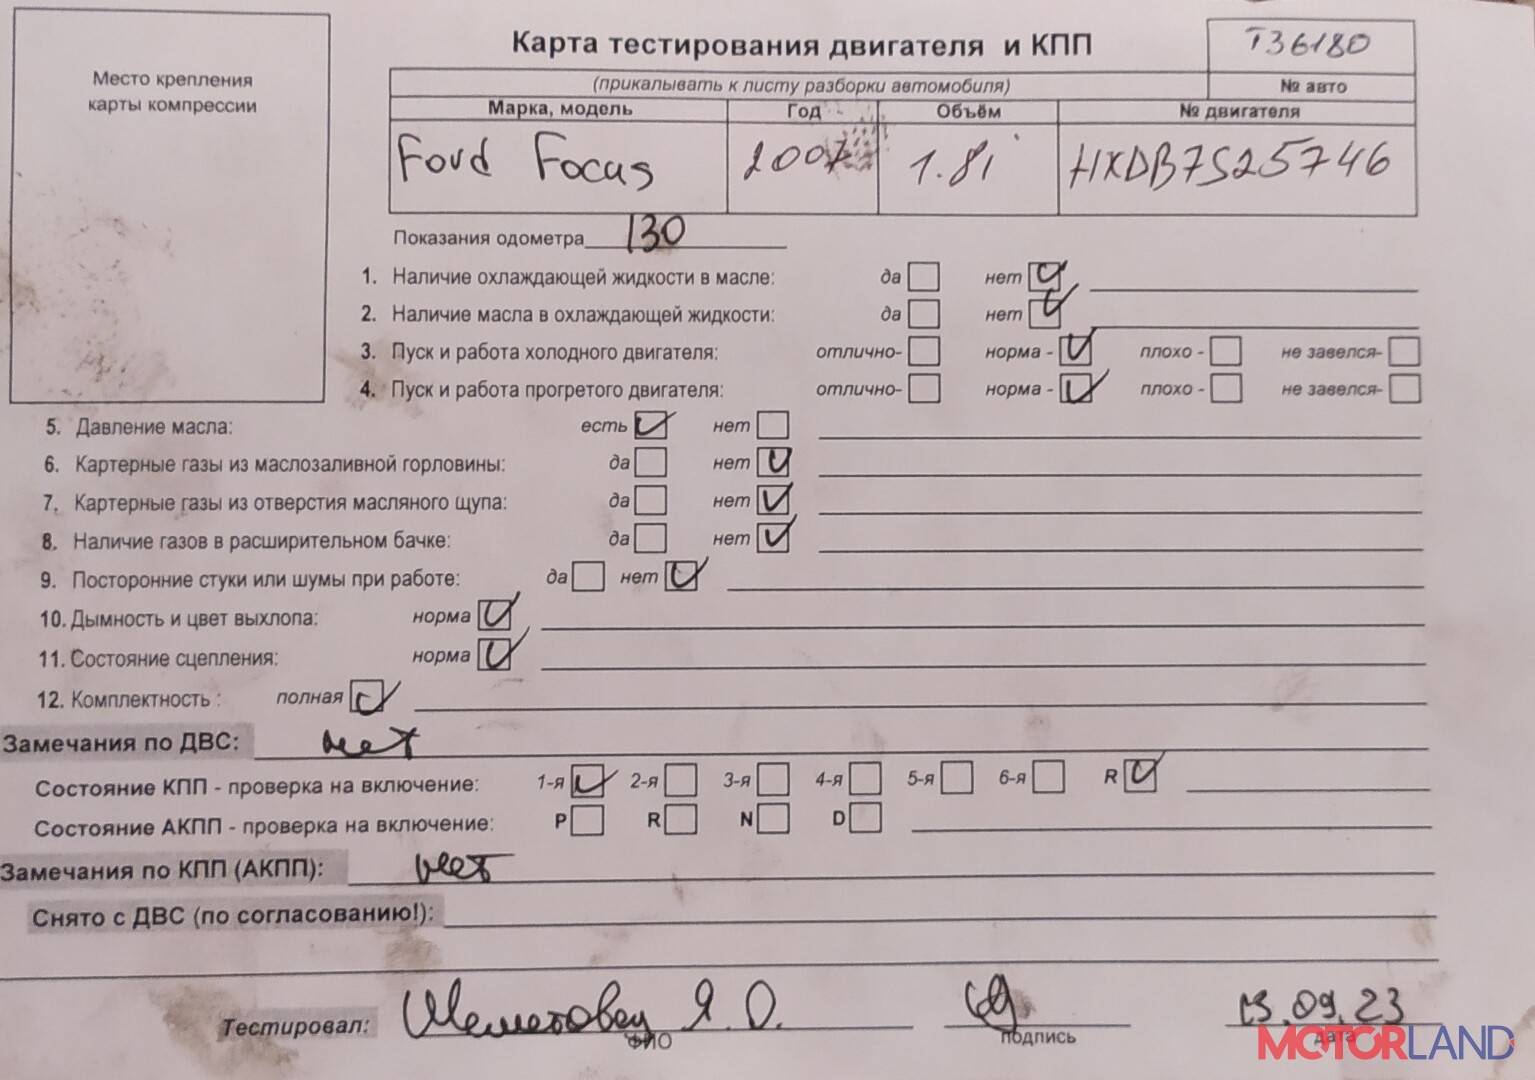 Место крепления
карты компрессии
Карта тестирования двигателя и КПП
Т36180
(прикалывать к листу разборки автомобиля)
№ авто
Марка, модель Год Объём № двигателя
Ford Focus 2007 1.8i HXDB7S25746
Показания одометра 130
1. Наличие охлаждающей жидкости в масле: да нет
2. Наличие масла в охлаждающей жидкости: да нет
3. Пуск и работа холодного двигателя: отлично- норма - плохо - не завелся-
4. Пуск и работа прогретого двигателя: отлично- норма - плохо - не завелся-
5. Давление масла: есть нет
6. Картерные газы из маслозаливной горловины: да нет
7. Картерные газы из отверстия масляного щупа: да нет
8. Наличие газов в расширительном бачке: да нет
9. Посторонние стуки или шумы при работе: да нет
10. Дымность и цвет выхлопа: норма
11. Состояние сцепления: норма
12. Комплектность : полная
Замечания по ДВС: нет
Состояние КПП - проверка на включение: 1-я 2-я 3-я 4-я 5-я 6-я R
Состояние АКПП - проверка на включение: P R N D
Замечания по КПП (АКПП): нет
Снято с ДВС (по согласованию!):
Тестировал: Я. О. 13.09.23
ФИО подпись дата
MOTORLAND